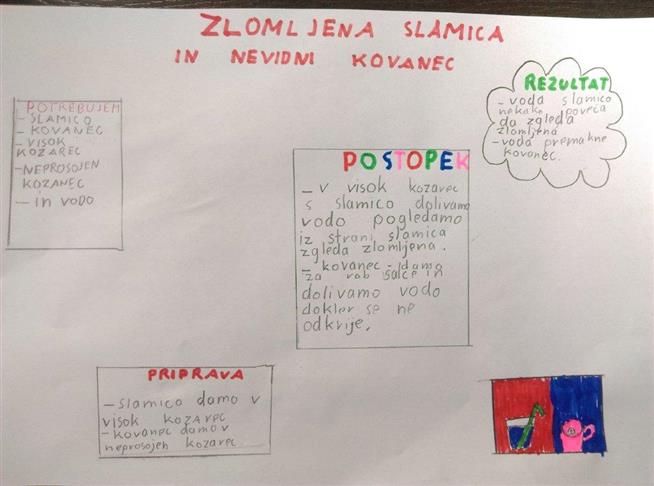 ZLOMLJENA SLAMICA
IN NEVIDNI KOVANEC
POTREBUJEM
- SLAMICO
- KOVANEC
- VISOK
KOZAREC
- NEPROSOJEN
KOZANEC
- in vodo
REZULTAT
- voda slamico
nekako poveča
da zgleda
zlomljena
- voda premakne
kovanec.
POSTOPEK
- v visok kozarec
s slamico dolivamo
vodo pogledamo
iz strani slamica
zgleda zlomljena.
- kovanec - damo
za rob šalce in
dolivamo vodo
dokler se ne
odkrije.
PRIPRAVA
- slamico damo v
visok kozarec
- kovanec damo v
neprosojen kozarec